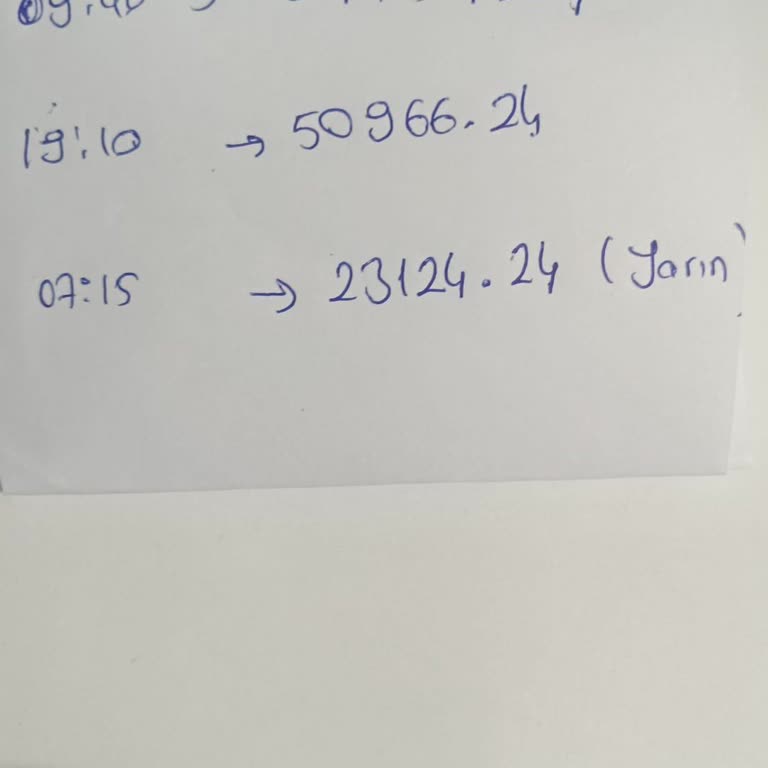 19:10 → 50966.24
07:15 → 23124.24 (Yarın)